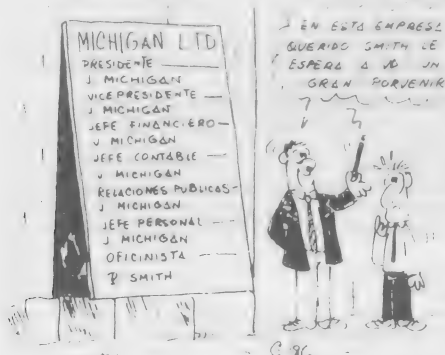 MICHIGAN LTD
PRESIDENTE —
J. MICHIGAN
VICEPRESIDENTE —
J MICHIGAN
JEFE FINANCIERO —
J MICHIGAN
JEFE CONTABLE —
J MICHIGAN
RELACIONES PUBLICAS -
J MICHIGAN
JEFE PERSONAL —
J MICHIGAN
OFICINISTA —
P SMITH
- EN ESTA EMPRESA
QUERIDO SMITH LE
ESPERA A VD UN
GRAN PORVENIR